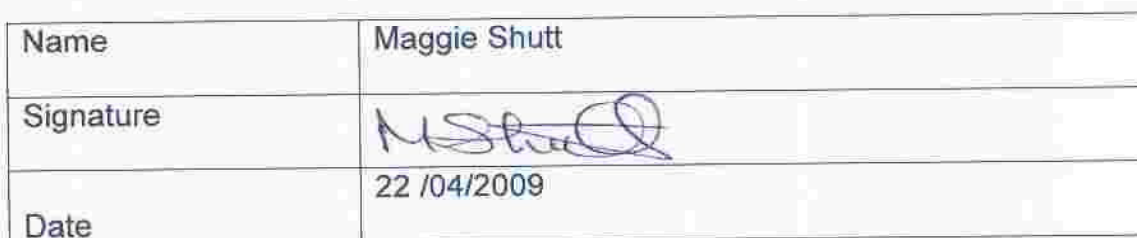 Name Maggie Shutt
Signature MShutt
22 /04/2009
Date